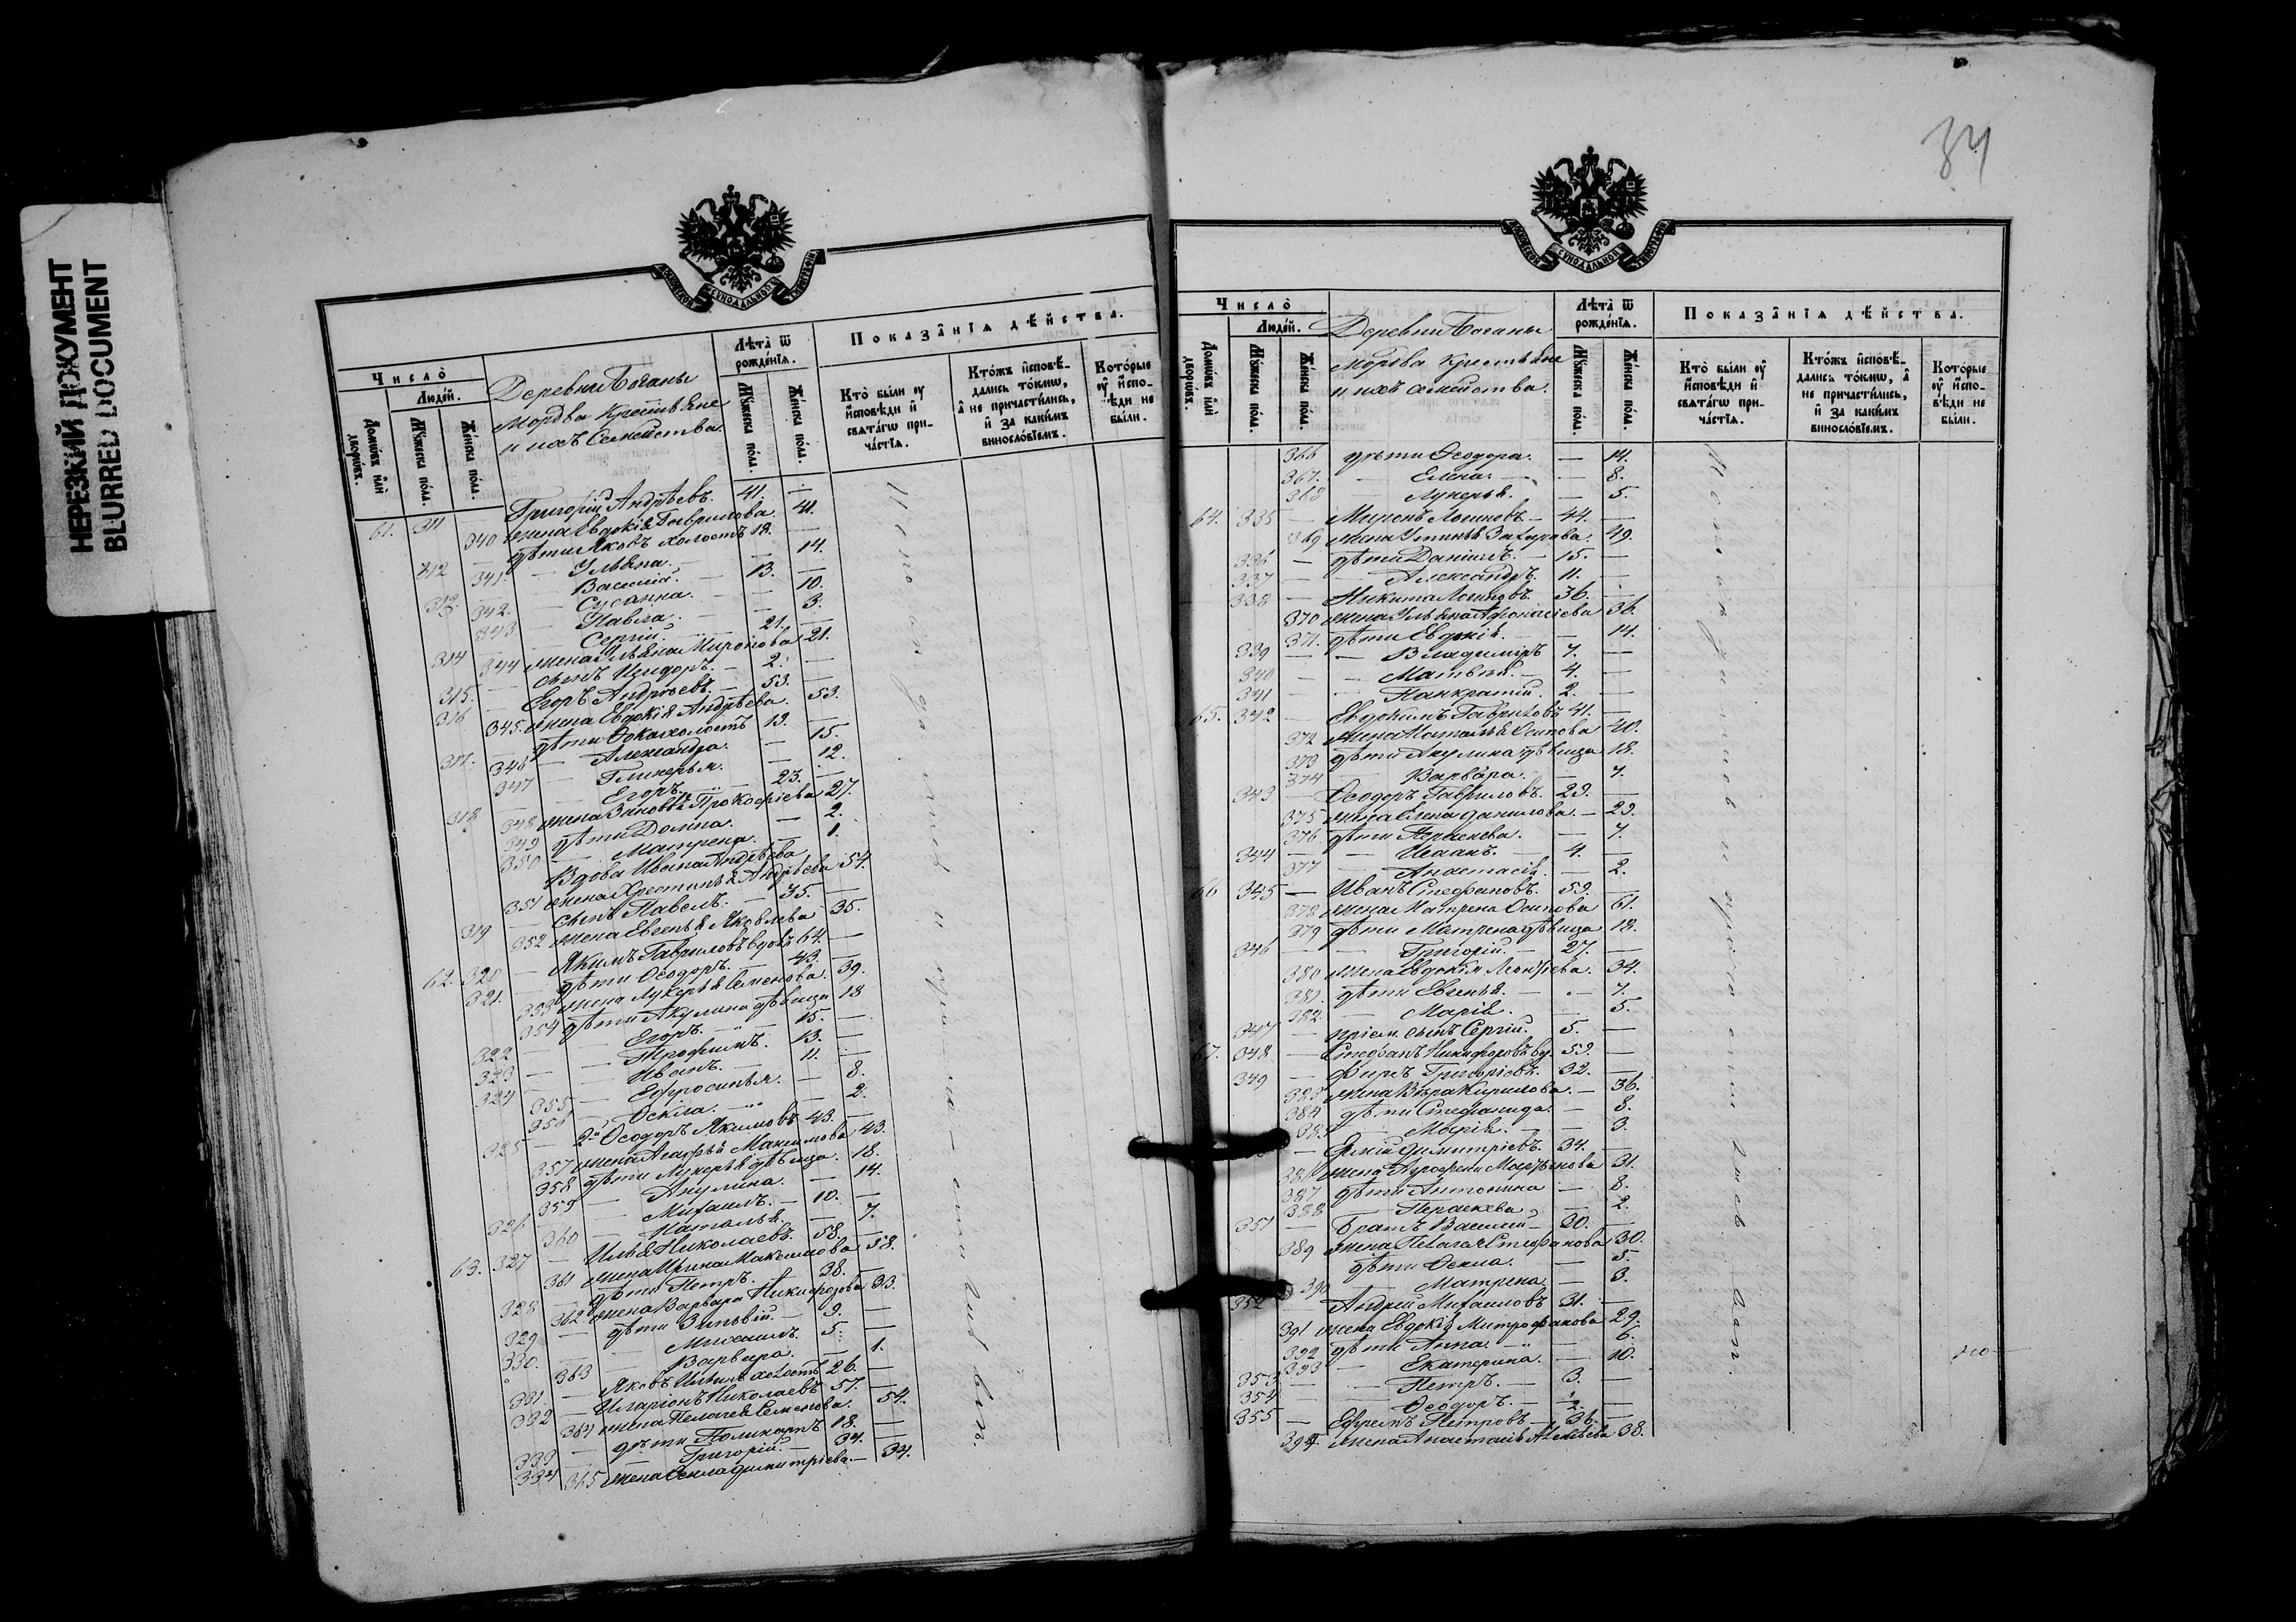 НЕРЕЗКИЙ ДОКУМЕНТ
BLURRED DOCUMENT
МОСКОВСКОЙ СѴНОДАЛЬНОЙ ТИПОГРАФІИ
Число̀
Людéй.
Домѡ́въ и҆лѝ дворѡ́въ.
Мꙋ́жеска по́ла.
Же́нска по́ла.
Деревни Боганы
Мордва Крестьяне
и ихъ Семейства.
Лѣ́та ѿ рожде́нїѧ.
Мꙋ́жеска по́ла.
Же́нска по́ла.
Показа̑нїѧ дѣ́йства.
Кто̀ бы́ли ᲂу҆ и҆сповѣди и҆ свѧта́гѡ прича́стїѧ.
Кто́жъ и҆сповѣ́дались то́кмѡ, а҆ не причасти́лись, и҆ за каки́мъ винослові́емъ.
Кото́рые ᲂу҆ и҆сповѣди не бы́ли.
61. 311 Григорій Андрѣевъ. 41. —
340 жена Евдокія Гаврилова. 41.
312 — дѣти Яковъ холостъ 18. —
341. — Ульяна. — 14.
313. — Василій. — 13. —
342. — Сусанна. — 10.
343. — Павла. — 3.
314 — Сергій. — 21. —
344 жена Ульяна Миронова 21.
315. — сынъ Исидоръ. — 2. —
316 — Егоръ Андрѣевъ. — 53. —
345. жена Евдокія Андрѣева. 53.
317. — дѣти Ѳока холостъ 19. —
346 — Александра. — 15.
347 — Гликерья. — 12.
318 — Егоръ. — 23. —
348 жена Зиновья Прокофіева 27.
349 дѣти Домна. — 2.
350 — Матрена. — 1.
Вдова Ивана Андрѣева
351 жена Христинья Андрѣева 54.
319 — сынъ Павелъ. — 35. —
352 жена Евгенья Яковлева 35.
62. 320. — Якимъ Гавриловъ вдовъ 64. —
321. — дѣти Ѳеодоръ. — 43. —
353 жена Лукерья Семенова. 39.
354 дѣти Акулина дѣвица 18
322 — Егоръ. — 15. —
323 — Трофимъ. 13. —
324 — Иванъ. — 11. —
355 — Ефросинья. — 8.
356 — Ѳекла. — 2.
325 — 2й Ѳеодоръ Якимовъ 43. —
357 жена Агафья Максимова 43.
358 дѣти Лукерья дѣвица. 18.
359 — Акулина. — 14.
326 — Михаилъ. — 10. —
360 — Наталья. — 7.
63. 327 — Илья Николаевъ. 58. —
361 жена Ирина Максимова 58.
328 — дѣти Петръ. — 38. —
362 жена Варвара Никифорова 33.
329 — дѣти Зиновій. — 9. —
330. — Михаилъ. 5. —
363 — Варвара. — 1.
331. — Яковъ Ильинъ холостъ 26. —
332 — Иларіонъ Николаевъ 57. —
364 жена Пелагея Семенова. 54.
333 — дѣти Поликарпъ 18. —
334 — Григорій. — 34. —
365 жена Ѳекла Димитріева. — 34.
Исповѣдались и пріоб
34
МОСКОВСКОЙ СѴНОДАЛЬНОЙ ТИПОГРАФІИ
Число̀
Людéй.
Домѡ́въ и҆лѝ дворѡ́въ.
Мꙋ́жеска по́ла.
Же́нска по́ла.
Деревни Боганы
Мордва Крестьяне
и ихъ семейства.
Лѣ́та ѿ рожде́нїѧ.
Мꙋ́жеска по́ла.
Же́нска по́ла.
Показа̑нїѧ дѣ́йства.
Кто̀ бы́ли ᲂу҆ и҆сповѣди и҆ свѧта́гѡ прича́стїѧ.
Кто́жъ и҆сповѣ́дались то́кмѡ, а҆ не причасти́лись, и҆ за каки́мъ винослові́емъ.
Кото́рые ᲂу҆ и҆сповѣди не бы́ли.
366 дѣти Ѳеодора. — 14.
367. — Елена. — 8.
368 — Лукерья. — 5.
64. 335 — Миронъ Логиновъ — 44. —
369 жена Устинья Захарова. 49.
336 — дѣти Даніилъ. — 15. —
337 — Александръ. 11. —
338 — Никита Логиновъ. 36. —
370 жена Ульяна Афонасіева 36.
371. дѣти Евдокія. — 14.
339 — Владиміръ 7. —
340 — Матвѣй. — 4. —
341 — Панкратій. 2. —
65. 342 — Евдокимъ Гавриловъ 41. —
372 жена Наталья Осипова 40.
373 дѣти Акулина дѣвица 18.
374 — Варвара. — 7.
343 — Ѳеодоръ Гавриловъ. 29. —
375 жена Елена Данилова. — 29.
376 дѣти Параскева. — 7.
344 — Иоаннъ. — 4. —
377 — Анастасія. — 2.
66 345 — Иванъ Стефановъ. 59. —
378 жена Матрена Осипова 61.
379 дѣти Матрена дѣвица 18.
346 — Григорій. — 27. —
380 жена Евдокія Леонтіева. 34.
381. дѣти Евгенья. — 7.
382. — Марія. — 5.
347 — пріем. сынъ Сергій. 5. —
67. 348 — Стефанъ Никифоровъ вд. 59. —
349 — Фирсъ Григоріевъ. 32. —
383 жена Вѣра Кирилова. — 36.
384 дѣти Стефанида. — 8.
385 — Марія. — 3.
— Ермій Димитріевъ. 34. —
386 жена Агрофена Мартынова 31.
387 дѣти Антонина — 8.
388 — Параскева. — 2.
351 — Братъ Василій — 30. —
389 жена Пелагея Стефанова 30.
дѣти Ѳекла. — 5.
390 — Матрена. — 3.
352 Андрей Михаиловъ 31. —
391 жена Евдокія Митрофанова 29.
392 дѣти Анна. — 6.
393 — Екатерина. — 10.
353 — Петръ. — 3. —
354 — Ѳеодоръ. — ½. —
355 — Ефремъ Петровъ — 36. —
394. жена Анастасія Алексѣева 38.